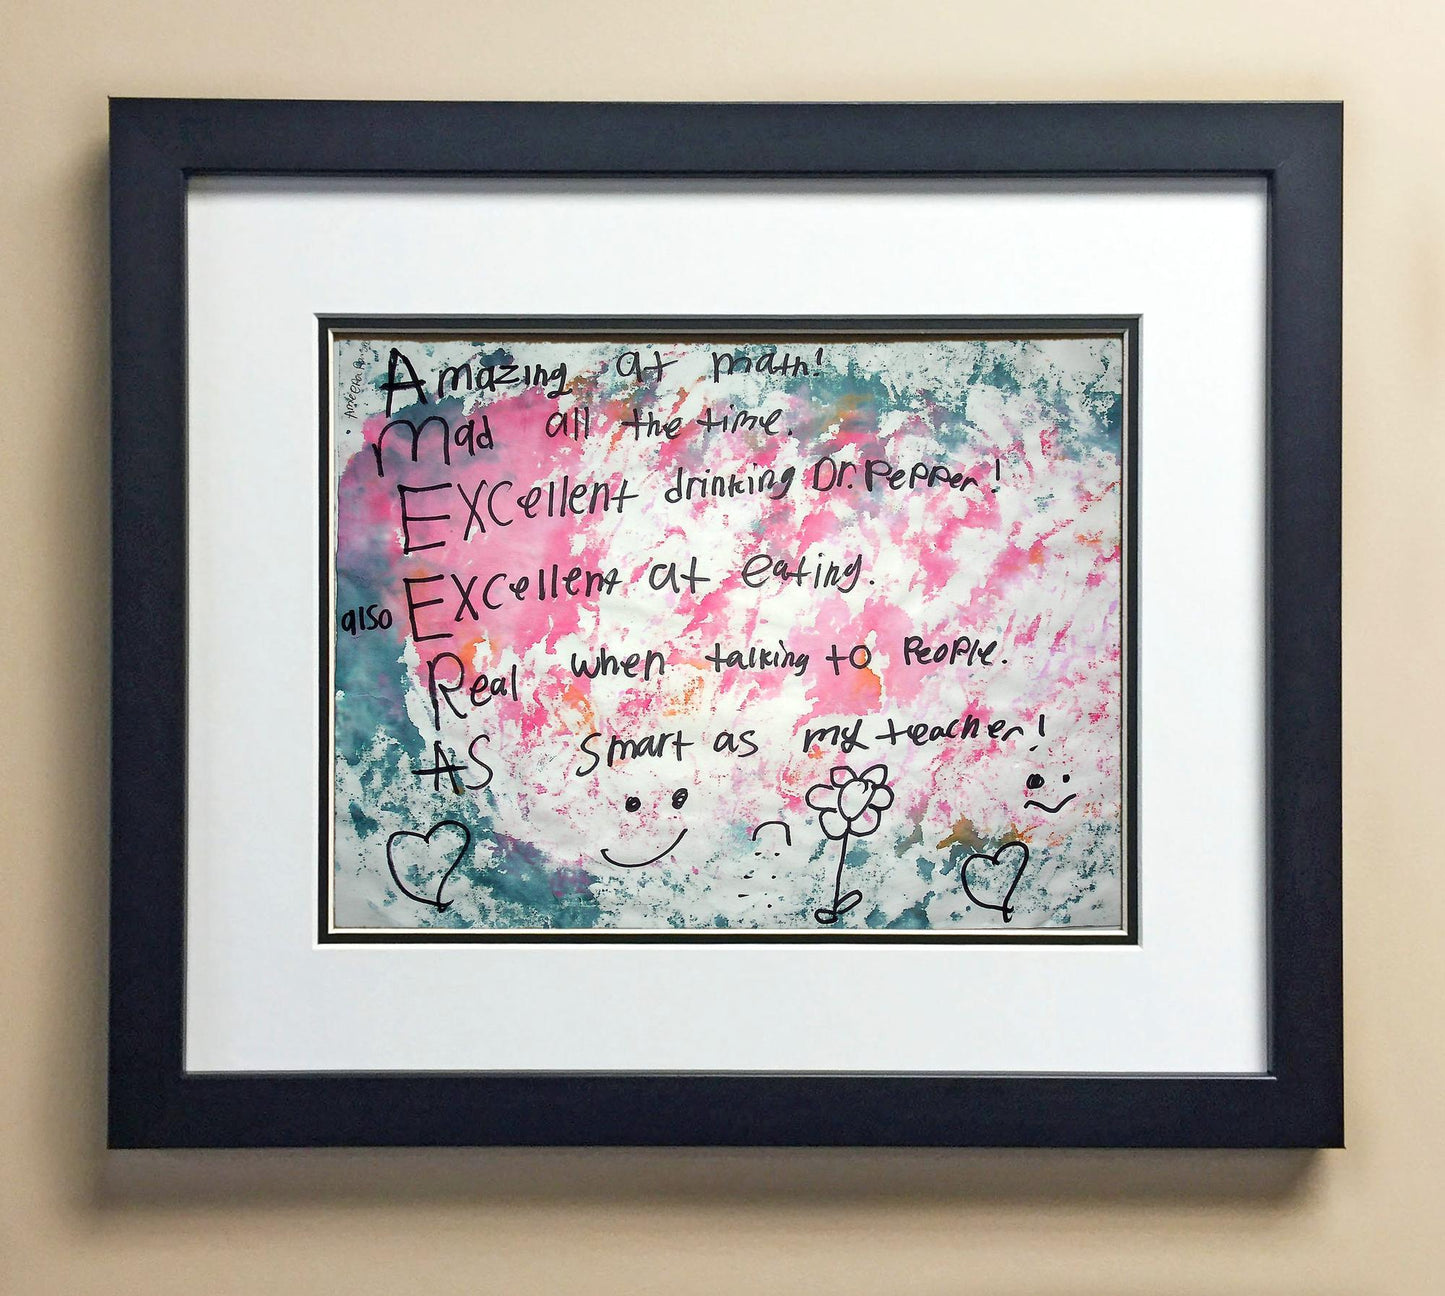 Amazing at math!
Mad all the time.
Excellent drinking Dr. Pepper!
also Excellent at eating.
Real when talking to People.
AS smart as my teacher!